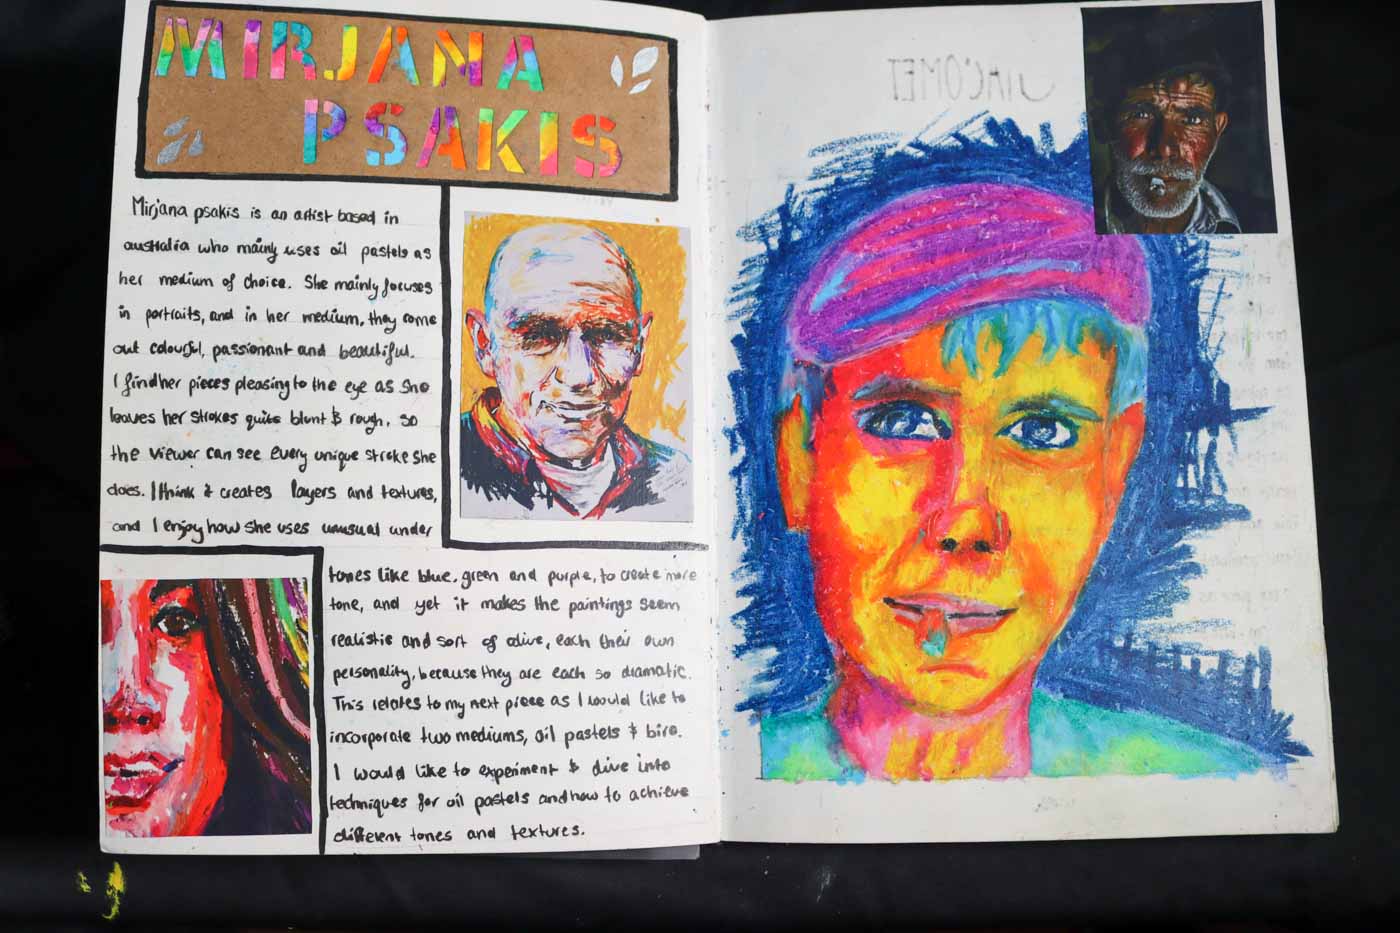 MIRJANA
PSAKIS
Mirjana psakis is an artist based in
australia who mainly uses oil pastels as
her medium of choice. She mainly focuses
in portraits, and in her medium, they come
out colourful, passionant and beautiful.
I find her pieces pleasing to the eye as she
leaves her strokes quite blunt & rough, so
the viewer can see every unique stroke she
does. I think it creates layers and textures,
and I enjoy how she uses unusual under
tones like blue, green and purple, to create more
tone, and yet it makes the paintings seem
realistic and sort of alive, each their own
personality, because they are each so dramatic.
This relates to my next piece as I would like to
incorporate two mediums, oil pastels & biro.
I would like to experiment & dive into
techniques for oil pastels and how to achieve
different tones and textures.